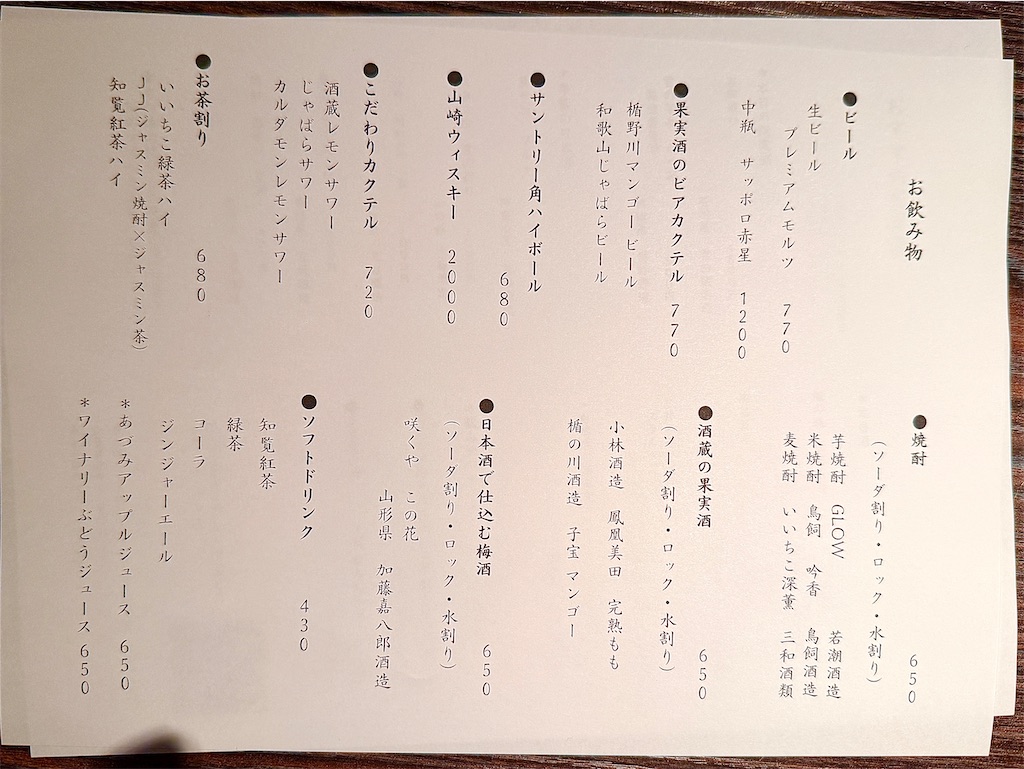 お飲み物
●ビール
生ビール
プレミアムモルツ 770
中瓶 サッポロ赤星 1200
●果実酒のビアカクテル 770
楯野川マンゴービール
和歌山じゃばらビール
●サントリー角ハイボール
680
●山崎ウィスキー 2000
●こだわりカクテル 720
酒蔵レモンサワー
じゃばらサワー
カルダモンレモンサワー
●お茶割り 680
いいちこ緑茶ハイ
JJ(ジャスミン焼酎×ジャスミン茶)
知覧紅茶ハイ
●焼酎 650
(ソーダ割り・ロック・水割り)
芋焼酎 GLOW 若潮酒造
米焼酎 鳥飼 吟香 鳥飼酒造
麦焼酎 いいちこ深薫 三和酒類
●酒蔵の果実酒 650
(ソーダ割り・ロック・水割り)
小林酒造 鳳凰美田 完熟もも
楯の川酒造 子宝マンゴー
●日本酒で仕込む梅酒 650
(ソーダ割り・ロック・水割り)
咲くや この花
山形県 加藤嘉八郎酒造
●ソフトドリンク 430
知覧紅茶
緑茶
コーラ
ジンジャーエール
*あづみアップルジュース 650
*ワイナリーぶどうジュース 650